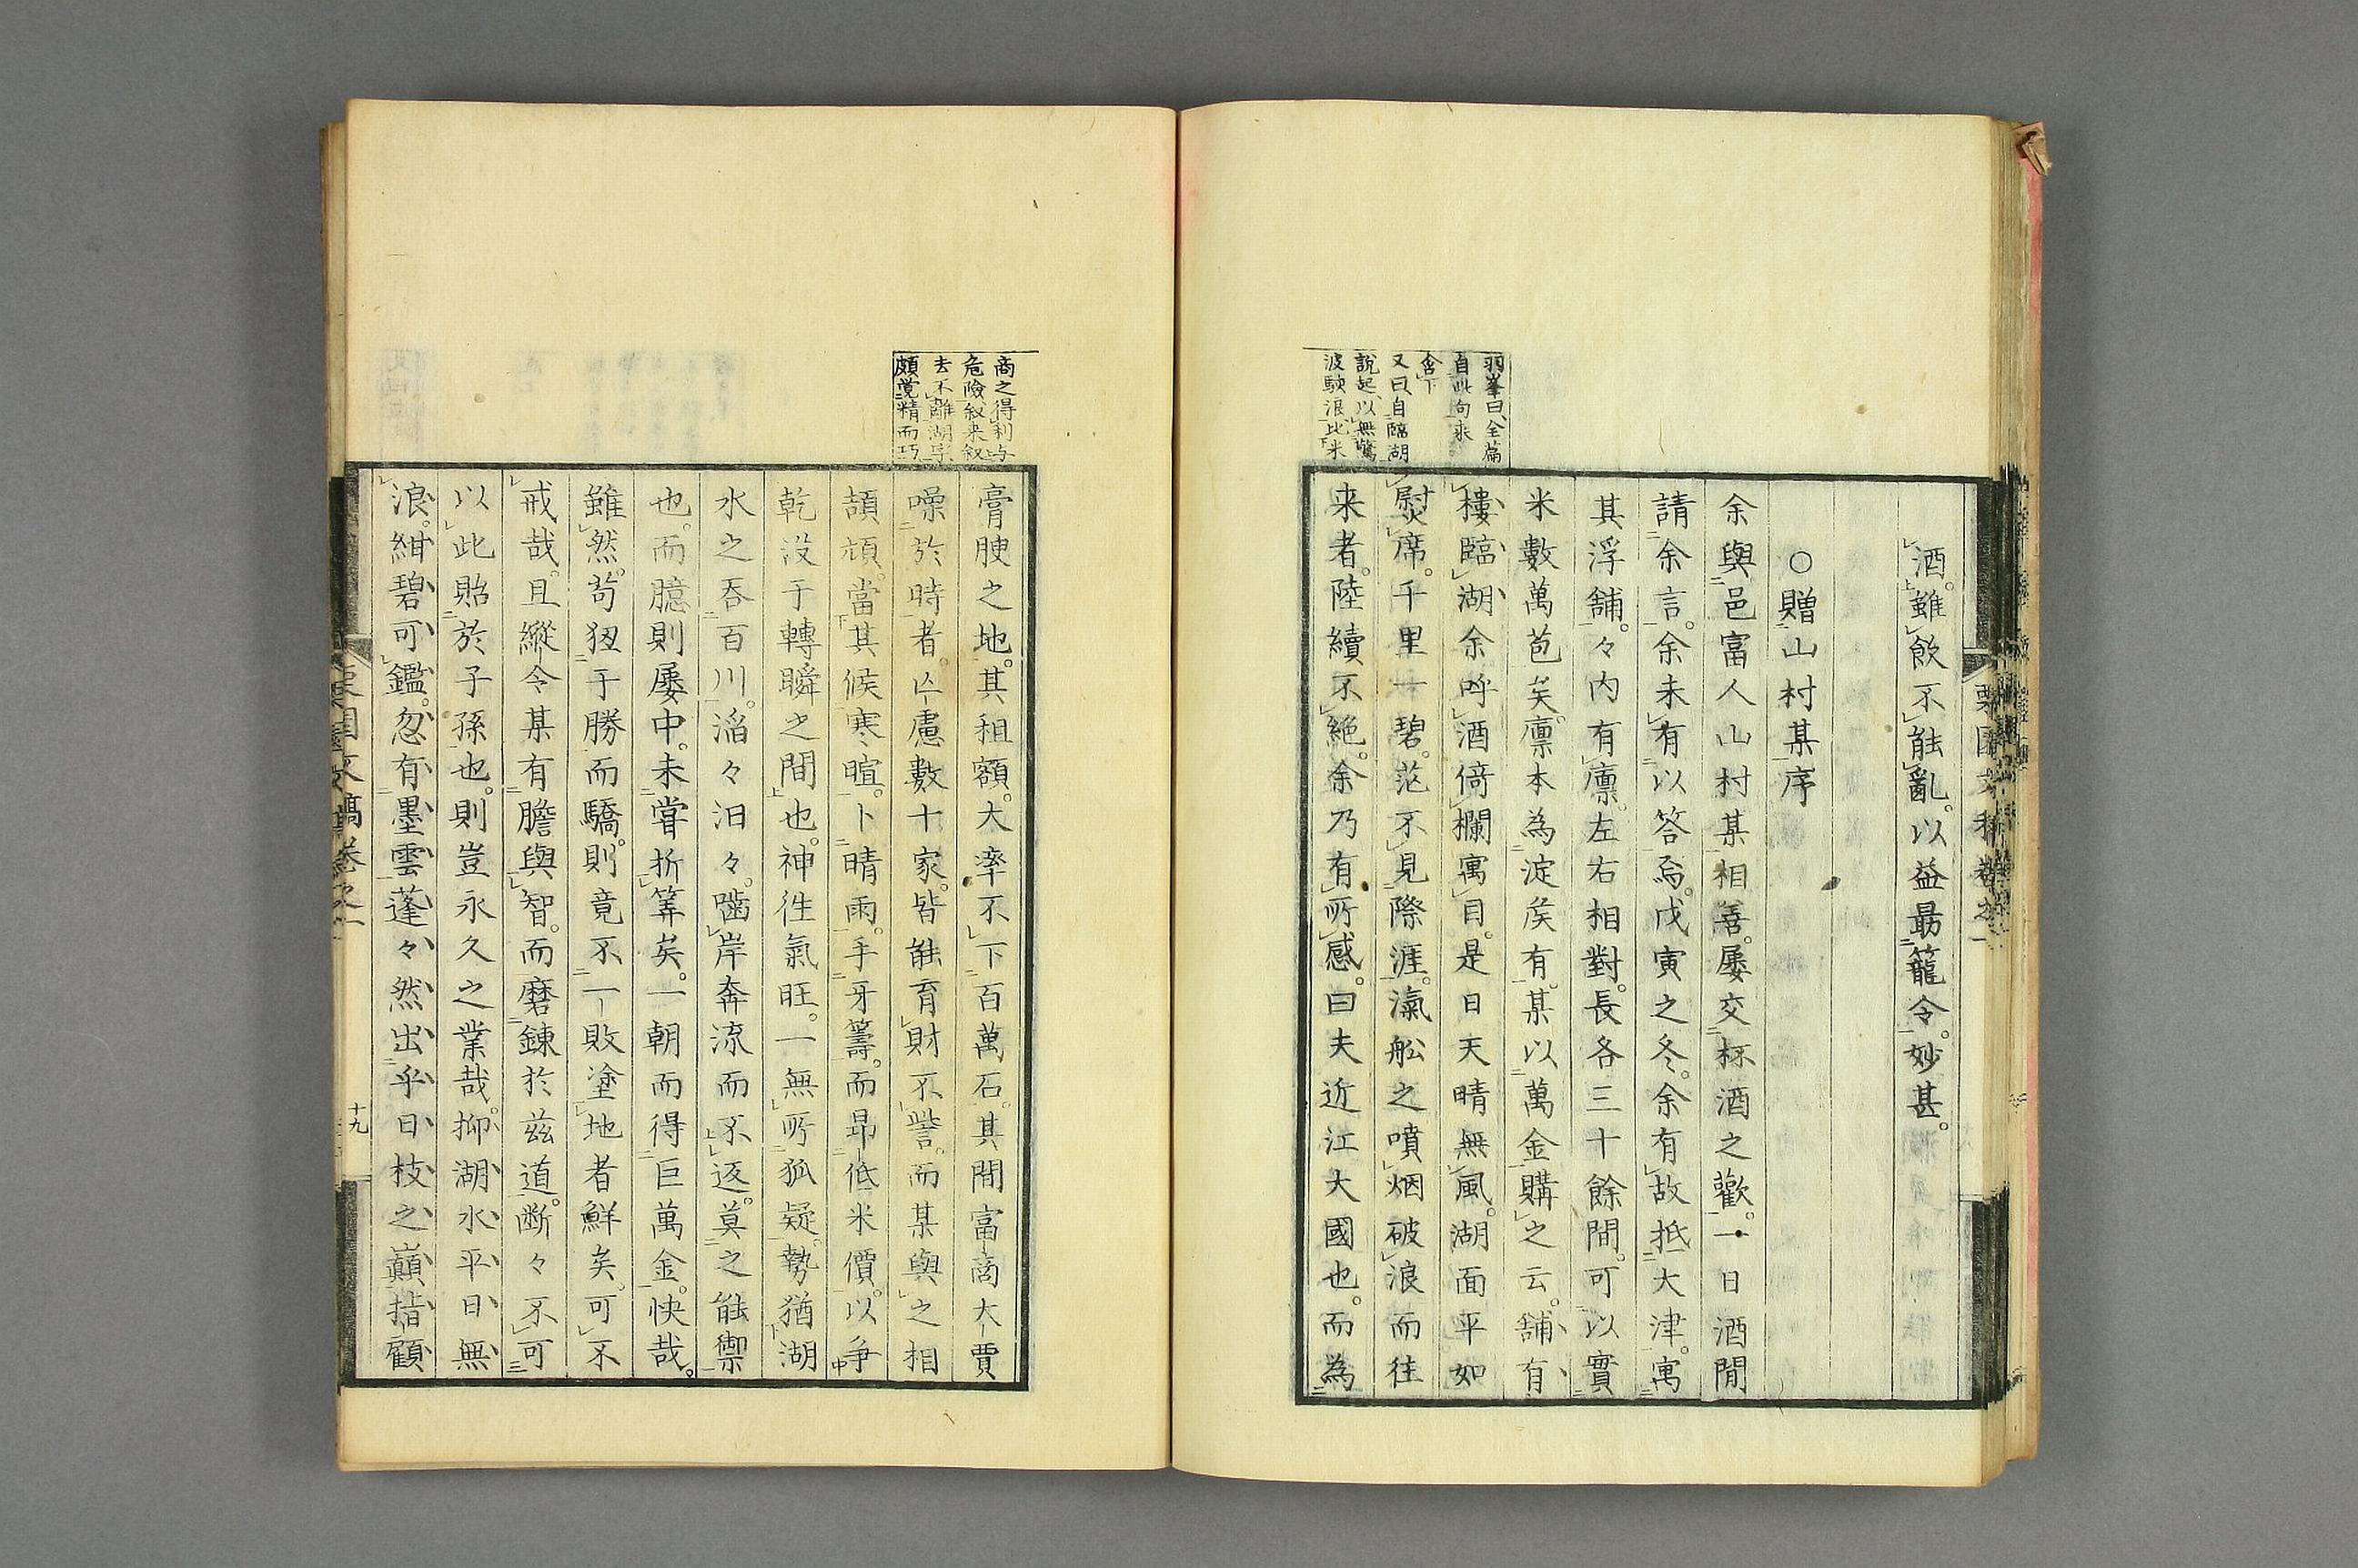 酒。雖飲不能亂。以益最籠令。妙甚。
○贈山村某序
余與邑富人山村某相善。屡交杯酒之歡。一日酒間
請余言。余未有以答焉。戊寅之冬。余有故抵大津。寓
其浮舗。々内有廪。左右相對。長各三十餘間。可以實
米數萬苞矣。廪本為淀矦有。某以萬金購之云。舗有
樓臨湖。余呼酒倚欄寓目。是日天晴無風。湖面平如
熨席。千里一碧。茫不見際涯。瀛舩之噴烟破浪而往
来者。陸續不絶。余乃有所感。曰夫近江大國也。而為
羽峯曰、全篇
自此句来
含下
又曰、自臨湖
說起、以無驚
波駛浪、此米
商之得利与
危險、叙来叙
去、不離湖字
頗覚精而巧
膏腴之地。其租額。大率不下百萬石。其間富商大賈
噪於時者。亡慮數十家。皆能育財不訾。而某與之相
頡頏。當其候寒暄。卜晴雨。手牙籌。而昻低米價。以争
乾没于轉瞬之間也。神徃氣旺。一無所狐疑。勢猶湖
水之呑百川。滔々汨々。噛岸奔流而不返。莫之能禦
也。而臆則屡中。未嘗折筭矣。一朝而得巨萬金。快哉。
雖然。苟狃于勝而驕。則竟不一敗塗地者鮮矣。可不
戒哉。且縦令某有膽與智。而磨錬於茲道。断々不可
以此貽於子孫也。則豈永久之業哉。抑湖水平日無
浪。紺碧可鑑。忽有墨雲蓬々然出乎日枝之巔。指顧
栗園文稿巻之一
十九